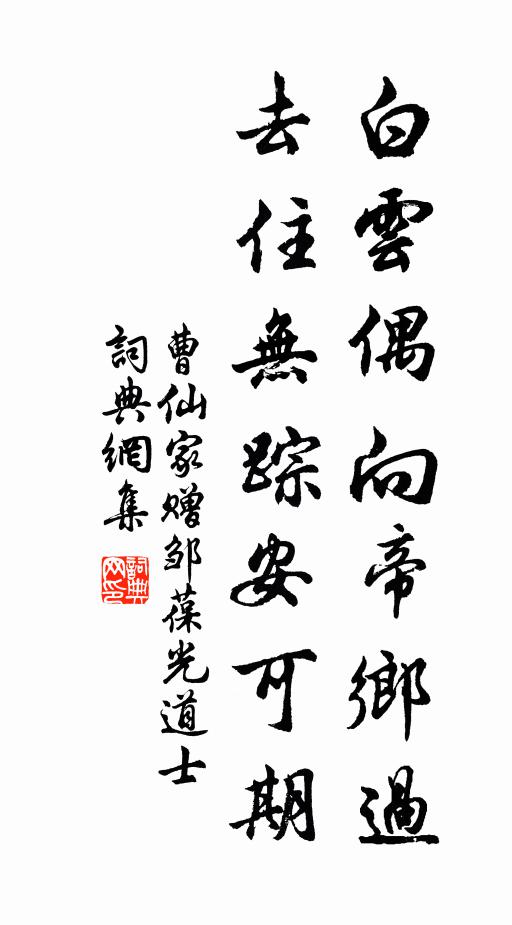 白雲偶向帝鄉過
去住無踪安可期
曹仙家赠邹葆光道士
詞典網集
詞典網印